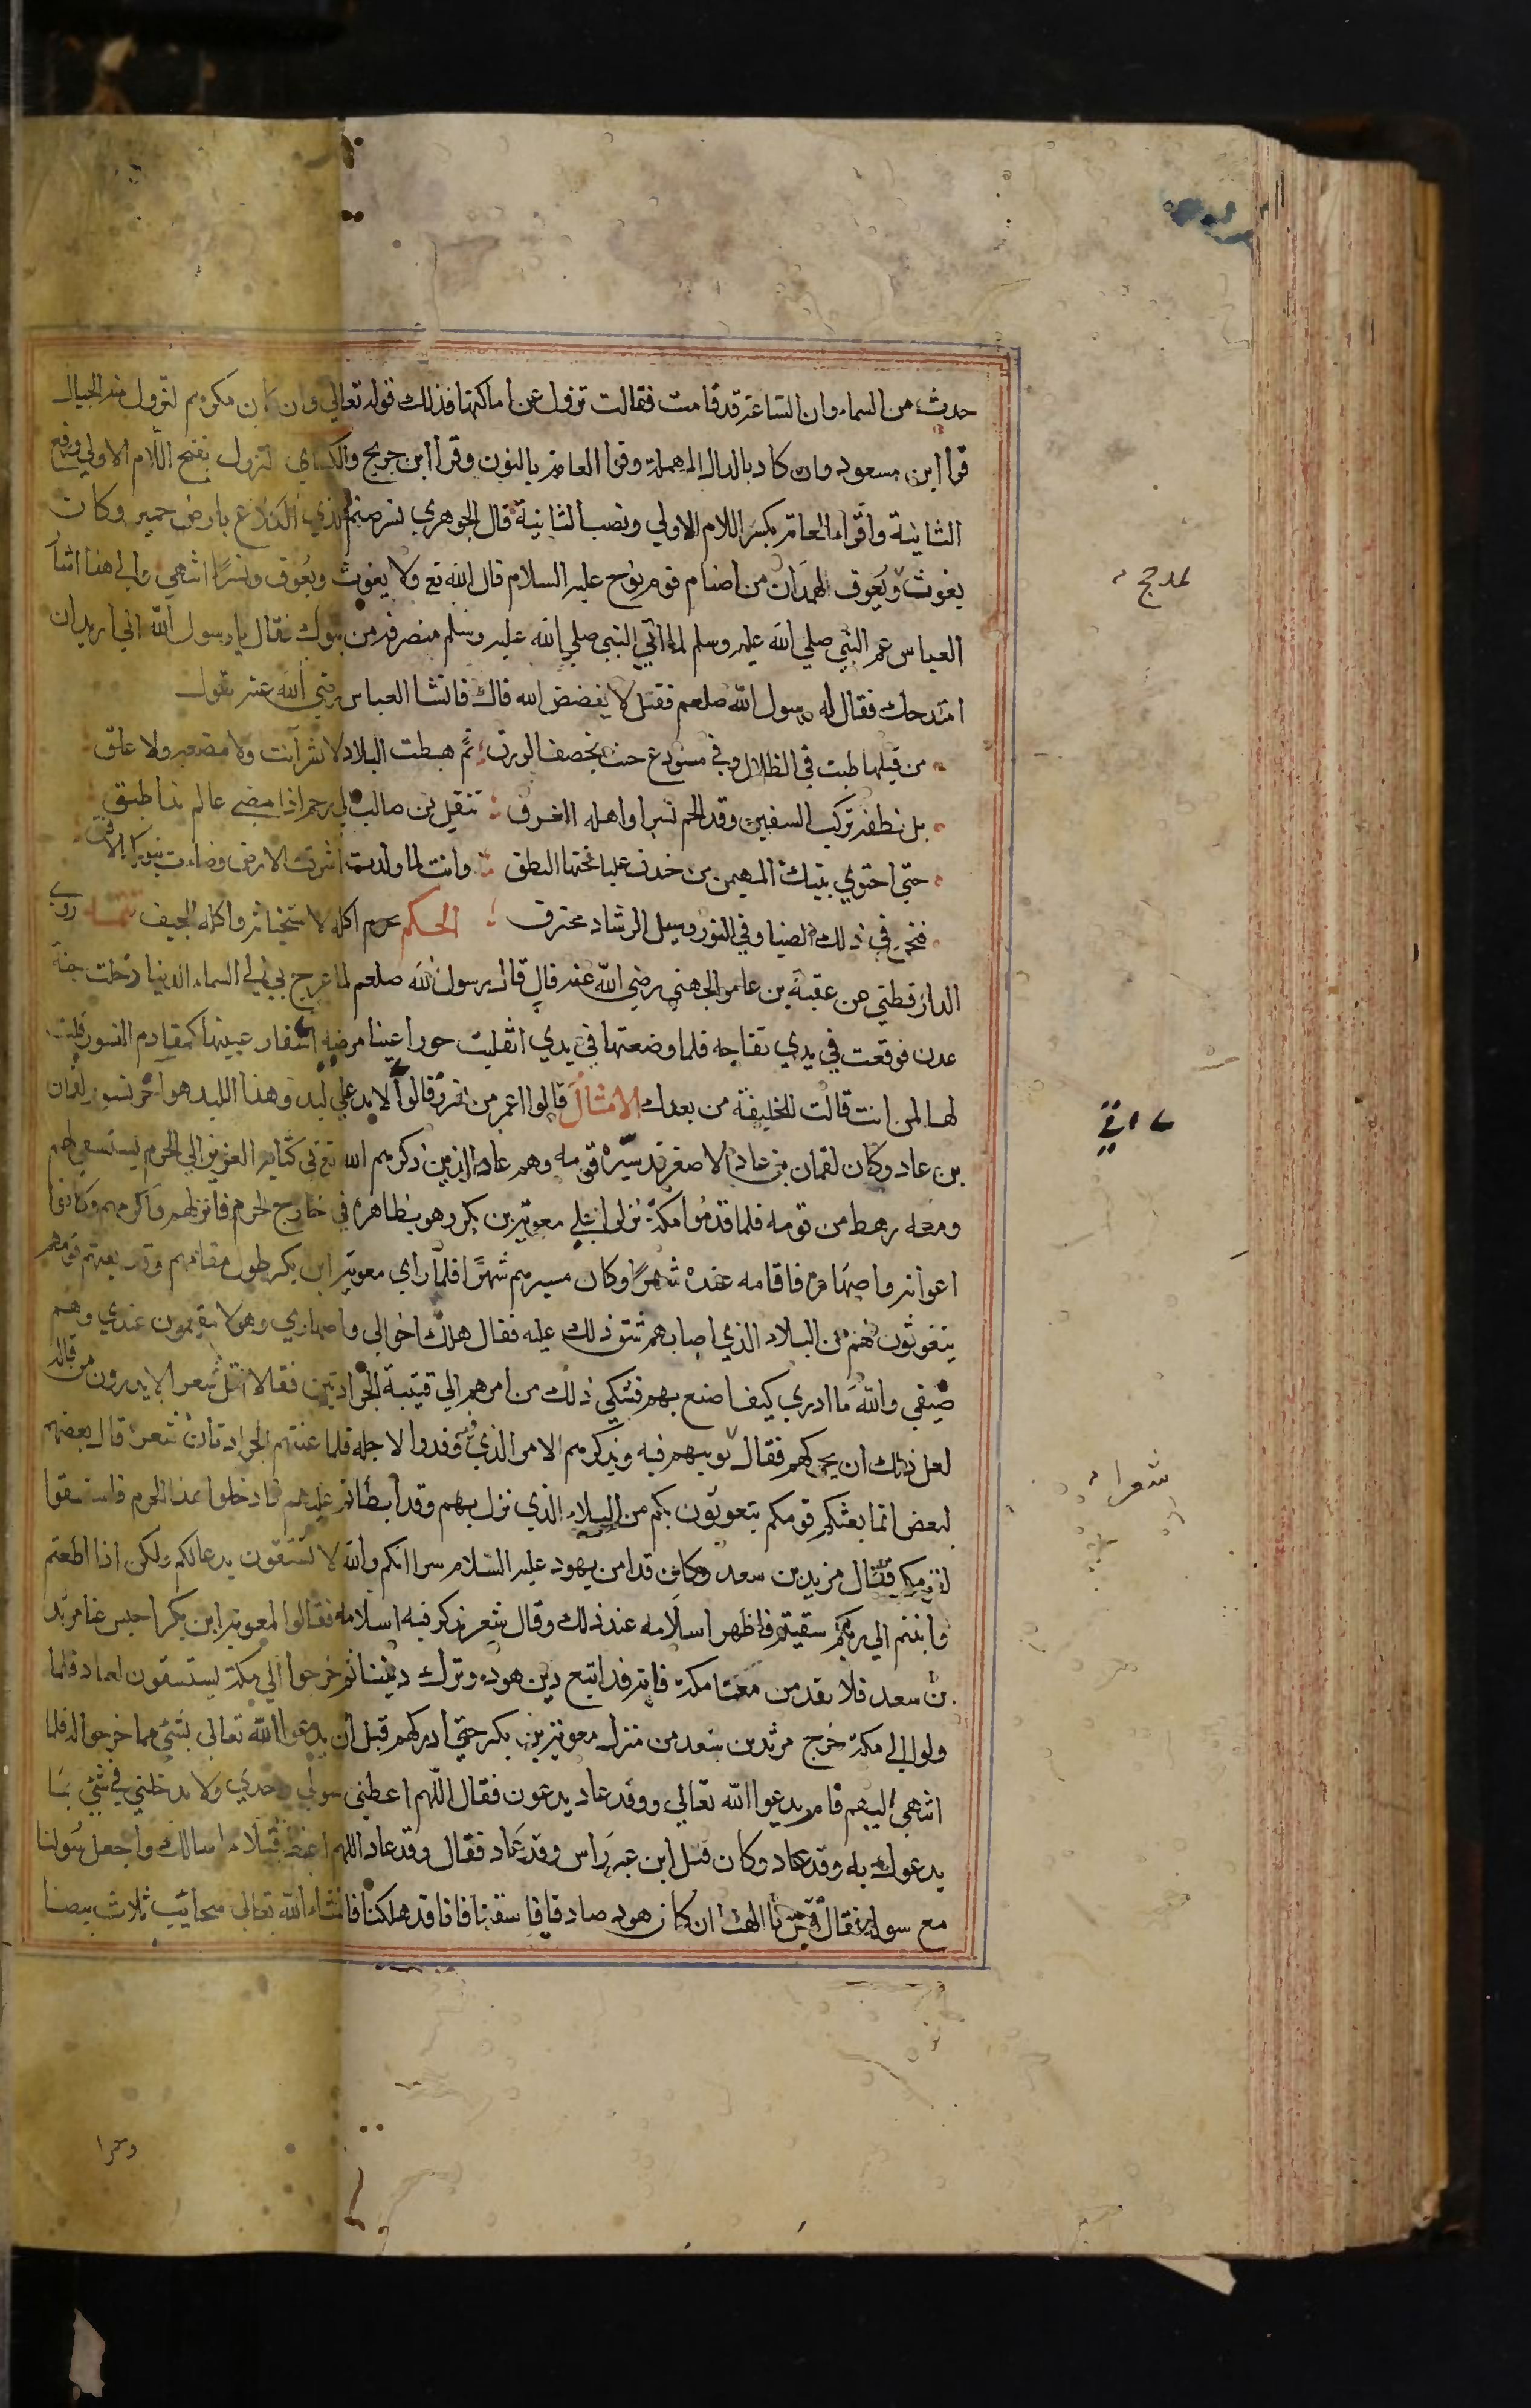 حدث من السماء وان الساعة قد قامت فقالت تزول عن اماكنها فذلك قوله تعالي وان كان مكرهم لتزول منه الجبال
قرا ابن مسعود وان كاد بالدال المهملة وقرا العامة بالنون وقرا ابن جريج والكسائي لتزول بفتح اللام الاولي ورفع
الثانية وقراء العامة بكسر اللام الاولي ونصب الثانية قال الجوهري نسر صنم لذي الكلاع بارض حمير وكان
يغوث ويعوق لهمدان من اصنام قوم نوح عليه السلام قال الله تع ولا يغوث ويعوق ونسرا انتهي والي هذا اشا
لمدحج
العباس عم النبي صلي الله عليه وسلم لما اتي النبي صلي الله عليه وسلم منصرفه من تبوك فقال يا رسول الله اني اريد ان
امتدحك فقال له رسول الله صلعم فقل لا يفضض الله فاك فانشا العباس رضي الله عنه يقول
من قبلها طبت في الظلال وفي مستودع حيث يخصف الورق ثم هبطت البلاد لا بشر آنت ولا مضغه ولا علق
بل نطفة تركب السفين وقد الجم نسرا واهله الغرق تنقل من صالب الي رحم اذا مضي عالم بدا طبق
حتي احتوي بيتك المهيمن من خندف عليا تحتها النطق وانت لما ولدت اشرقت الارض وضاءت بنورك الافق
فنحن في ذلك الضيا وفي النور وسبل الرشاد نخترق الحكم يحرم اكله لاستخباثه واكله الجيف تتمة روي
الدارقطني عن عقبة بن عامر الجهني رضي الله عنه قال قال رسول الله صلعم لما عرج بي الي السماء الدنيا دخلت جنة
عدن فوقعت في يدي تفاحه فلما وضعتها في يدي انفلت حورا عينا مرضيه اشفار عينيها كمقادم النسور قلت
لها لمن انت قالت للخليفة من بعدك الامثال قالوا اعمر من نسر وقالوا لابد علي لبد وهذا اللبد هو اخر نسور لقمان
بن عاد وكان لقمان بن عاد الاصغر قد سيره قومه وهم عاد الذين ذكرهم الله تع في كتابه العزيز الي الحرم يستسقي لهم
ومعه رهط من قومه فلما قدموا مكة نزلوا علي معوية بن بكر وهو بظاهره في خارج الحرم فانزلهم واكرمهم وكانوا
اخوانه واصهاره فاقاموا عنده شهرا وكان مسيرهم شهرا فلما راي معوية ابن بكر طول مقامهم وقد بعثهم قومهم
يتغوثون بهم من البلاء الذي اصابهم شق ذلك عليه فقال هلك اخوالي واصهاري وهولا مقيمون عندي وهم
ضيفي والله ما ادري كيف اصنع بهم فشكي ذلك من امرهم الي قينتيه الجرادتين فقالا قل شعرا لا يدرون من قاله
لعل ذلك ان يحركهم فقال يوبيهم فيه ويذكرهم الامر الذي وفدوا لاجله فلما غنتهم الجرادتان شعرا قال بعضهم
شعرا
لبعض انما بعثكم قومكم يتغوثون بكم من البلاء الذي نزل بهم وقد ابطاتم عليهم فادخلوا هذا الحرم فاستسقوا
لقومكم فقال مرثد بن سعد وكان قد امن بهود عليه السلام سرا انكم والله لا تسقون بدعائكم ولكن اذا اطعتم
وانبتم الي ربكم سقيتم فاظهر اسلامه عند ذلك وقال شعر يذكر فيه اسلامه فقالوا لمعوية ابن بكر احبس عنا مرثد
بن سعد فلا يقدمن معنا مكة فانه قد اتبع دين هود وترك ديننا ثم خرجوا الي مكة يستسقون لعاد فلما
ولوا الي مكة خرج مرثد بن سعد من منزل معوية بن بكر حتي ادركهم قبل ان يدعوا الله تعالي بشي مما خرجوا له فلما
انتهي اليهم قام يدعوا الله تعالي ووفد عاد يدعون فقال اللهم اعطني سولي وحدي ولا تدخلني في شي مما
يدعوك به وفد عاد وكان قيل ابن عتر راس وفد عاد فقال وفد عاد اللهم اعط قيلا ما سالك واجعل سولنا
مع سوله فقال قيل يا الهنا ان كان هود صادقا فاسقنا فانا قد هلكنا فانشاء الله تعالي سحائب ثلاث بيضا
وحمرا